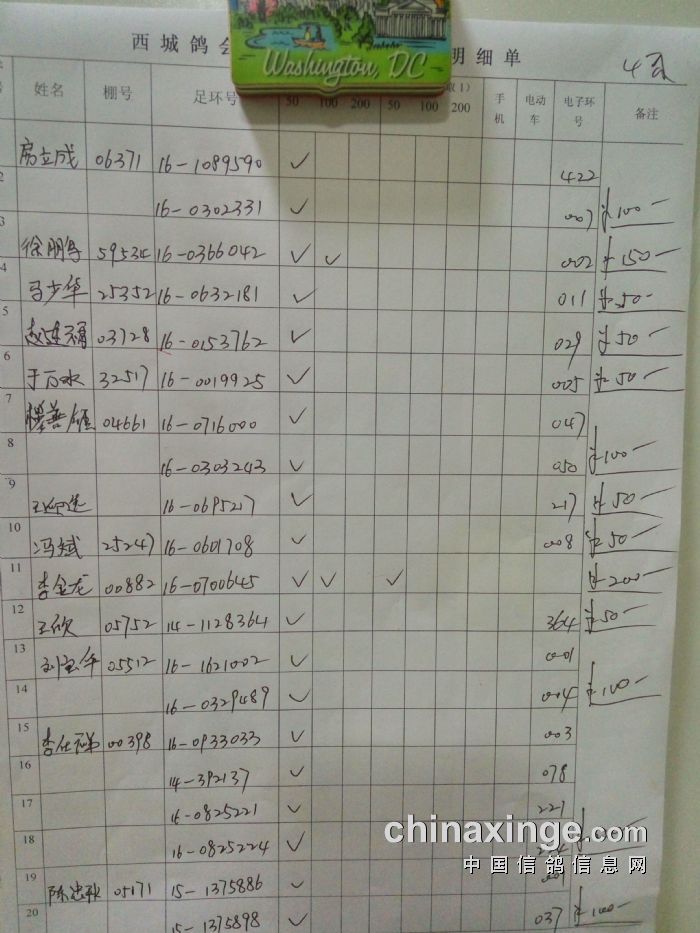 西城鸽会 明细单 4页
Washington, DC
姓名 棚号 足环号 50 100 200 50 100 200 手机 电动车 电子环号 备注
房立成 06371 16-1089590 ✓ 422
2 16-0302331 ✓ 007 ¥100-
3 59534 16-0366042 ✓ ✓ 002 ¥150-
4 马少华 25352 16-0632181 ✓ 011 ¥50-
5 03728 16-0153762 ✓ 029 ¥50-
6 于万水 32517 16-0019925 ✓ 005 ¥50-
7 04661 16-0716000 ✓ 047
8 16-0303243 ✓ 050 ¥100-
9 16-0695217 ✓ 217 ¥50-
10 冯斌 25247 16-0601708 ✓ 008 ¥50-
11 李金龙 00882 16-0700645 ✓ ✓ ✓ ¥200-
12 王欣 05752 14-1128364 ✓ 364 ¥50-
13 刘宝华 05512 16-1621002 ✓ 001
14 16-0329489 ✓ 004 ¥100-
15 00398 16-0933033 ✓ 003
16 14-392137 ✓ 078
17 16-0825221 ✓ 221
18 16-0825224 ✓
19 陈忠秋 05171 15-1375886 ✓
20 15-1375898 ✓ 037 ¥100-
chinaxinge.com
中国信鸽信息网